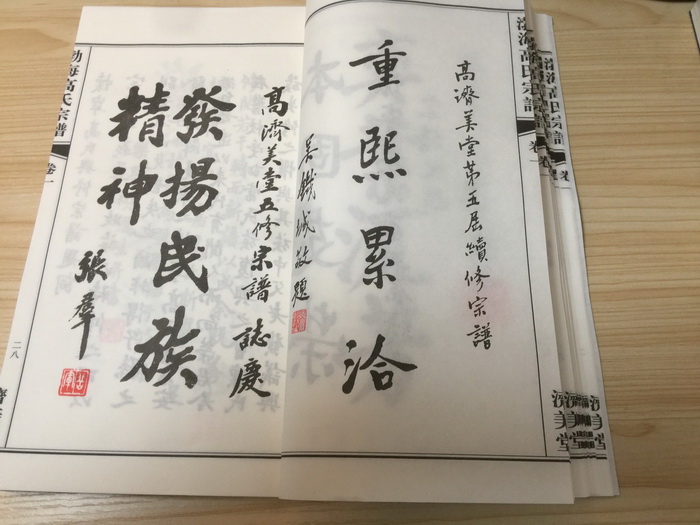 高濟美堂第五屆續修宗譜
重熙累洽
吳鐵城敬題
高濟美堂五修宗譜誌慶
發揚民族
精神
張羣
渤海高氏宗譜
卷一
二八
渤海高氏宗譜
卷一
濟美堂